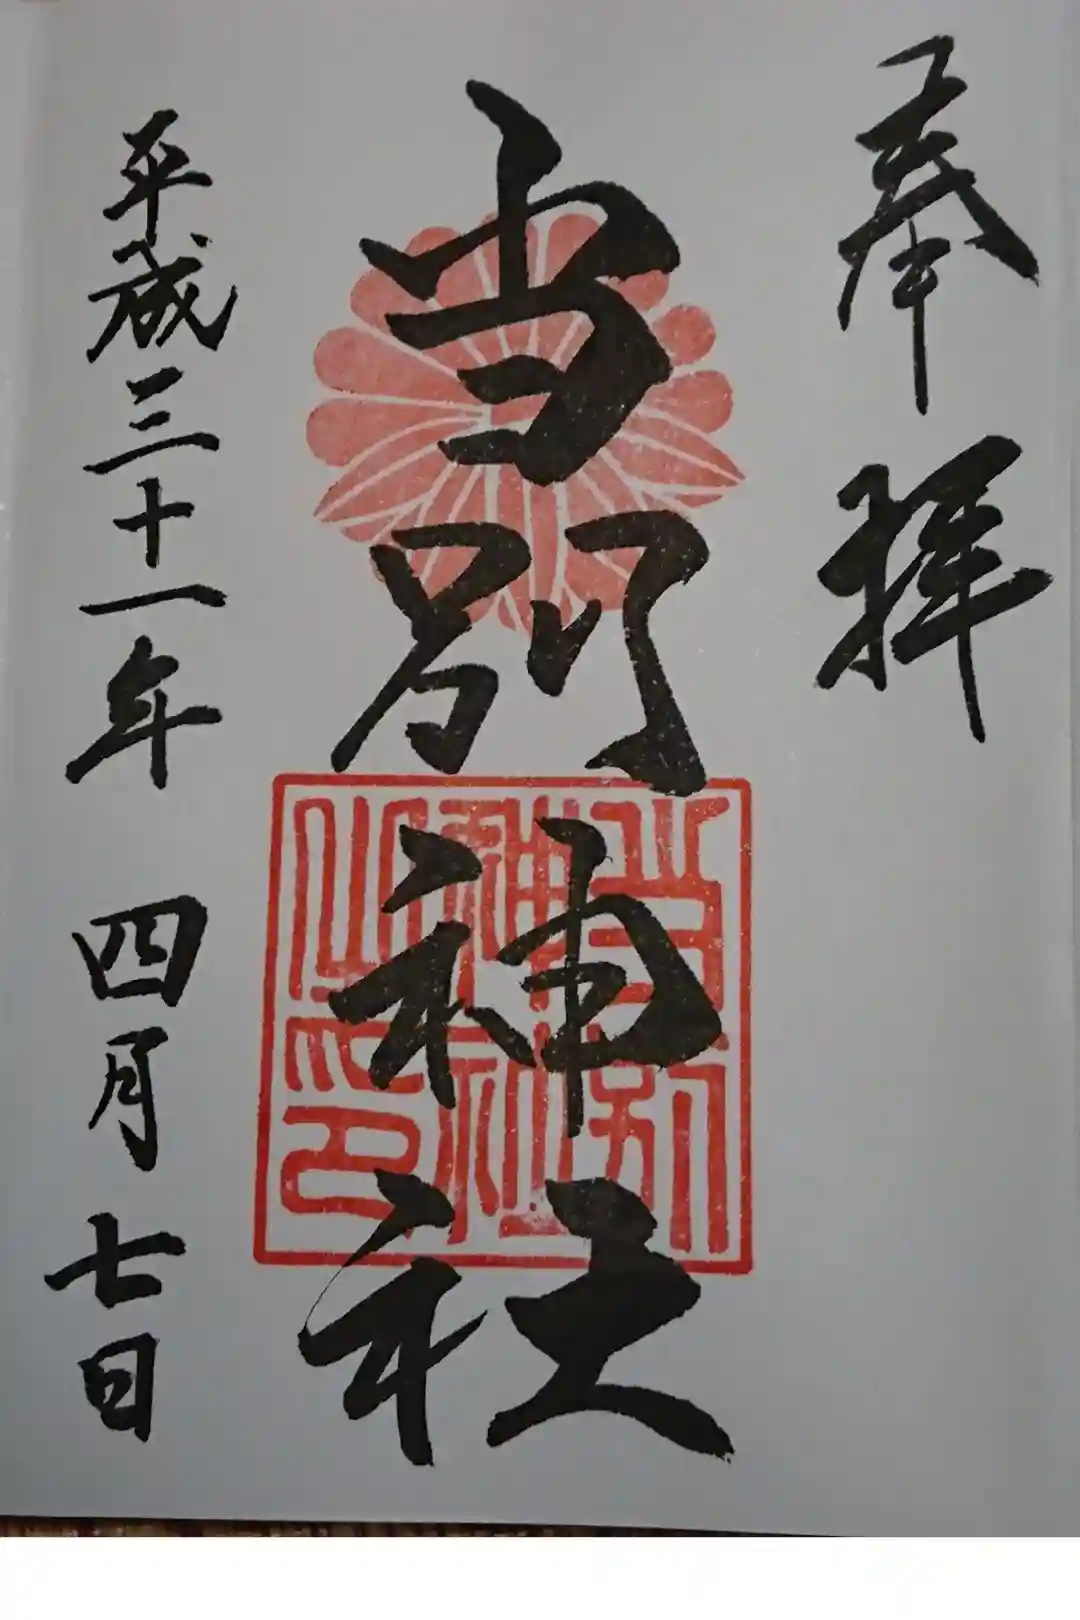 奉拝
当別神社
当別神社之印
平成三十一年 四月 七日